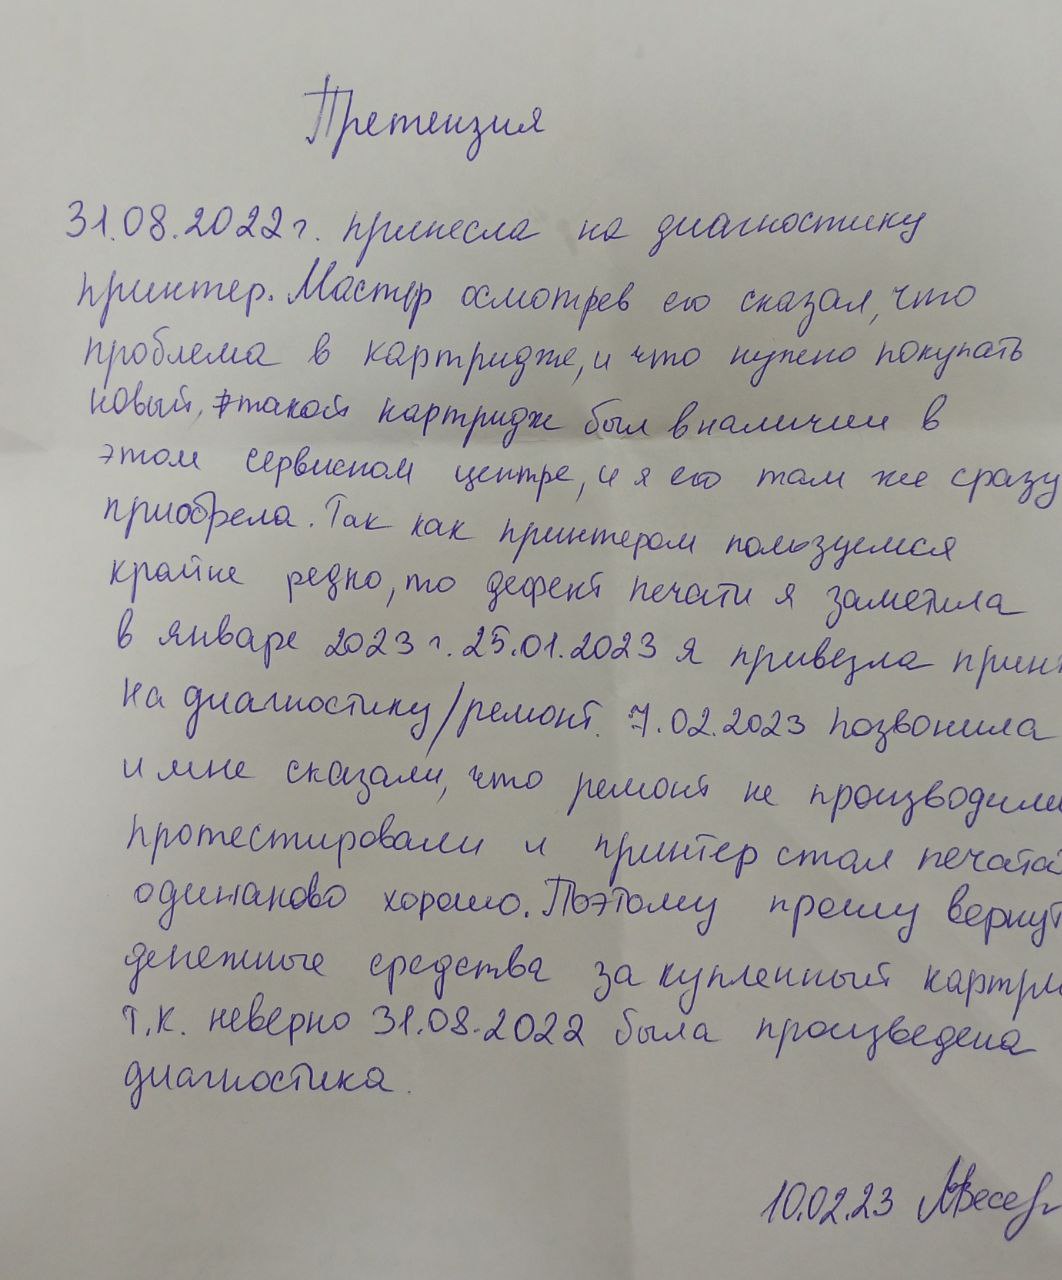 Претензия
31.08.2022г. принесла на диагностику
принтер. Мастер осмотрев его сказал, что
проблема в картридже, и что нужно покупать
новый, такой картридж был в наличии в
этом сервисном центре, и я его там же сразу
приобрела. Так как принтером пользуемся
крайне редко, то дефект печати я заметила
в январе 2023 г. 25.01.2023 я привезла принт
на диагностику/ремонт. 7.02.2023 позвонила
и мне сказали, что ремонт не производили
протестировали и принтер стал печата
одинаково хорошо. Поэтому прошу вернут
денежные средства за купленный картри
т.к. неверно 31.08.2022 была произведена
диагностика.
10.02.23